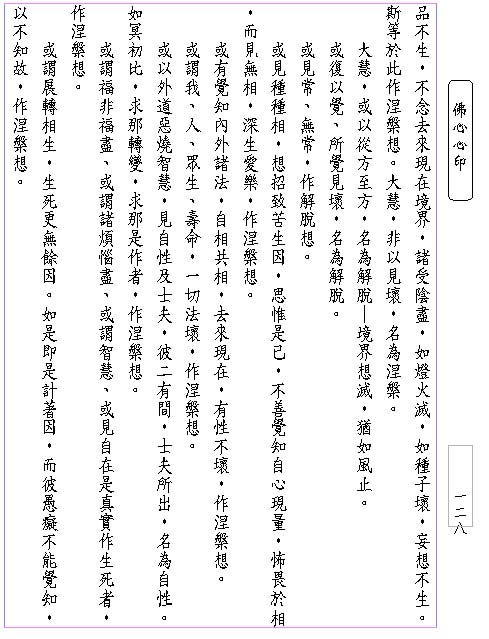 品不生，不念去來現在境界，諸受陰盡，如燈火滅，如種子壞，妄想不生。
斯等於此作涅槃想。大慧，非以見壞，名為涅槃。
大慧，或以從方至方，名為解脫—境界想滅，猶如風止。
或復以覺、所覺見壞，名為解脫。
或見常、無常，作解脫想。
或見種種相，想招致苦生因，思惟是已，不善覺知自心現量，怖畏於相
，而見無相，深生愛樂，作涅槃想。
或有覺知內外諸法，自相共相，去來現在，有性不壞，作涅槃想。
或謂我、人、眾生、壽命，一切法壞，作涅槃想。
或以外道惡燒智慧，見自性及士夫，彼二有間，士夫所出，名為自性。
如冥初比，求那轉變，求那是作者，作涅槃想。
或謂福非福盡、或謂諸煩惱盡、或謂智慧、或見自在是真實作生死者，
作涅槃想。
或謂展轉相生，生死更無餘因。如是即是計著因，而彼愚癡不能覺知，
以不知故，作涅槃想。
佛心心印
一二八